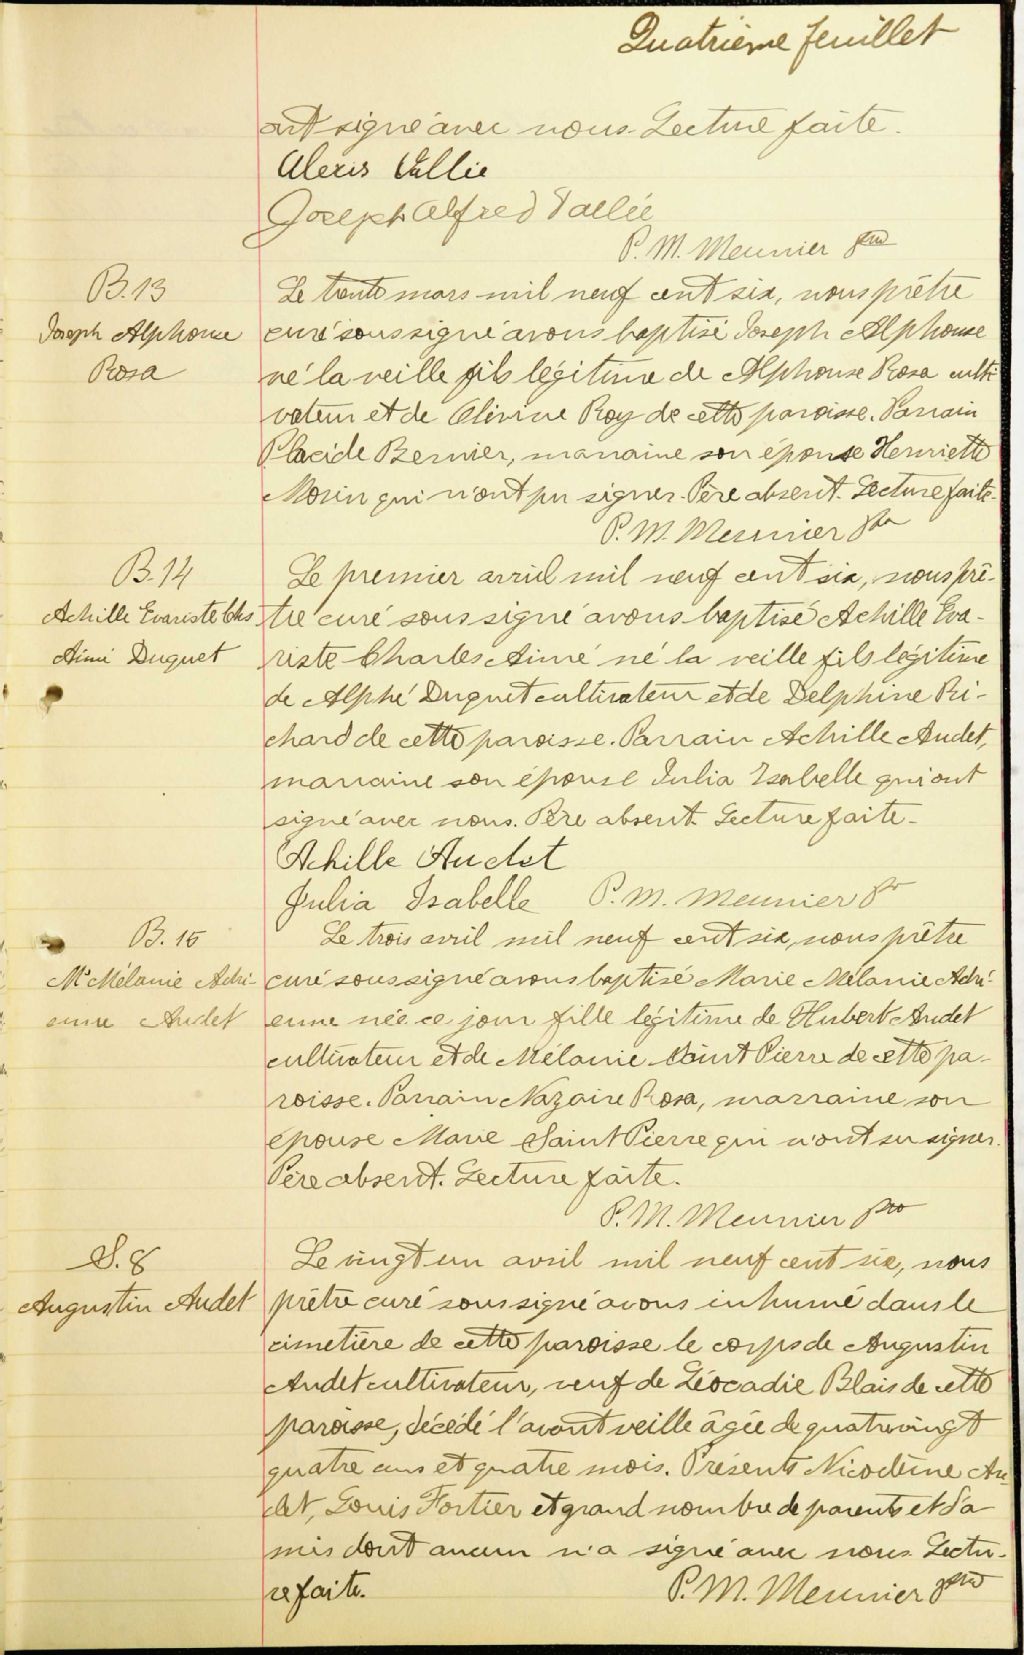 Quatrième feuillet
ont signé avec nous. Lecture faite.
Alexis Vallée
Joseph Alfred Vallée
P. M. Meunier ptre
B. 13
Joseph Alphonse
Rosa
Le trente mars mil neuf cent six, nous prêtre
curé soussigné avons baptisé Joseph Alphonse
né la veille fils légitime de Alphonse Rosa culti
vateur et de Olivine Roy de cette paroisse. Parrain
Placide Bernier, marraine son épouse Henriette
Morin qui n'ont pu signer. Père absent. Lecture faite.
P. M. Meunier ptre
B. 14
Achille Evariste Chs
Aimé Duquet
Le premier avril mil neuf cent six, nous prê-
tre curé soussigné avons baptisé Achille Eva-
riste Charles Aimé né la veille fils légitime
de Alphé Duquet cultivateur et de Delphine Ri-
chard de cette paroisse. Parrain Achille Audet,
marraine son épouse Julia Isabelle qui ont
signé avec nous. Père absent. Lecture faite.
Achille Audet
Julia Isabelle P. M. Meunier ptre
B. 15
Mie Mélanie Adri-
enne Audet
Le trois avril mil neuf cent six, nous prêtre
curé soussigné avons baptisé Marie Mélanie Adri-
enne née ce jour fille légitime de Hubert Audet
cultivateur et de Mélanie Saint Pierre de cette pa-
roisse. Parrain Nazaire Rosa, marraine son
épouse Marie Saint Pierre qui n'ont su signer.
Père absent. Lecture faite.
P. M. Meunier ptre
S. 8
Augustin Audet
Le vingt un avril mil neuf cent six, nous
prêtre curé soussigné avons inhumé dans le
cimetière de cette paroisse le corps de Augustin
Audet cultivateur, veuf de Léocadie Blais de cette
paroisse, décédé l'avant veille âgée de quatrevingt
quatre ans et quatre mois. Présents Nicodème Au
det, Louis Fortier et grand nombre de parents et d'a
mis dont aucun n'a signé avec nous. Lectu-
re faite. P. M. Meunier ptre